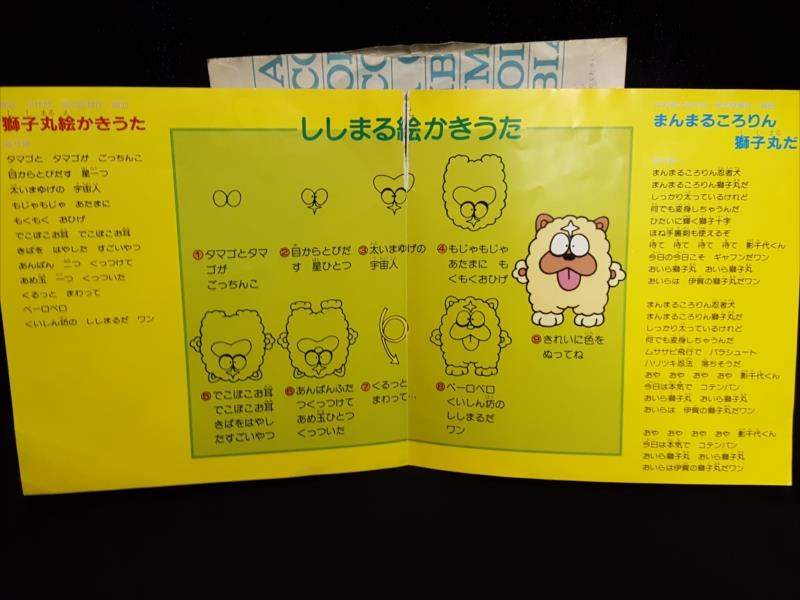 獅子丸絵かきうた
タマゴと タマゴが ごっちんこ
目からとびだす 星一つ
太いまゆげの 宇宙人
もじゃもじゃ あたまに
もくもく おひげ
でこぼこお耳 でこぼこお耳
きばを はやした すごいやつ
あんぱん 二つ くっつけて
あめ玉 一つ くっついた
くるっと まわって
ペーロペロ
くいしん坊の ししまるだ ワン
ししまる絵かきうた
①タマゴとタマ
ゴが
ごっちんこ
②目からとびだ
す 星ひとつ
③太いまゆげの
宇宙人
④もじゃもじゃ
あたまに も
くもくおひげ
⑤でこぼこお耳
でこぼこお耳
きばをはやし
たすごいやつ
⑥あんぱんふた
つくっつけて
あめ玉ひとつ
くっついた
⑦くるっと
まわって…
⑧ペーロペロ
くいしん坊の
ししまるだ
ワン
⑨きれいに色を
ぬってね
まんまるころりん
獅子丸だ
まんまるころりん忍者犬
まんまるころりん獅子丸だ
しっかり太っているけれど
何でも変身しちゃうんだ
ひたいに輝く獅子十字
ほね手裏剣も使えるぞ
待て 待て 待て 待て 影千代くん
今日の今日こそ ギャフンだワン
おいら獅子丸 おいら獅子丸
おいらは 伊賀の獅子丸だワン
まんまるころりん忍者犬
まんまるころりん獅子丸だ
しっかり太っているけれど
何でも変身しちゃうんだ
ムササビ飛行で パラシュート
ハリツキ忍法 落ちそうだ
おや おや おや おや 影千代くん
今日は本気で コテンパン
おいら獅子丸 おいら獅子丸
おいらは 伊賀の獅子丸だワン
おや おや おや おや 影千代くん
今日は本気で コテンパン
おいら獅子丸 おいら獅子丸
おいらは伊賀の獅子丸だワン